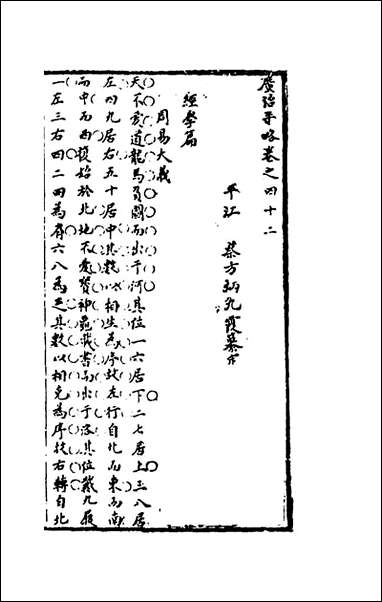 廣治平畧卷之四十二
平江　蔡方炳九霞纂定
經學篇
周易大義
天不愛道龍馬負圖而出于河其位一六居下二七居上三八居
左四九居右五十居中其數以相生為序故左行自北而東而南
而中而西復始於北地不愛寶神龜載書而出于洛其位戴九履
一左三右四二四為肩六八為足其數以相克為序故右轉自北